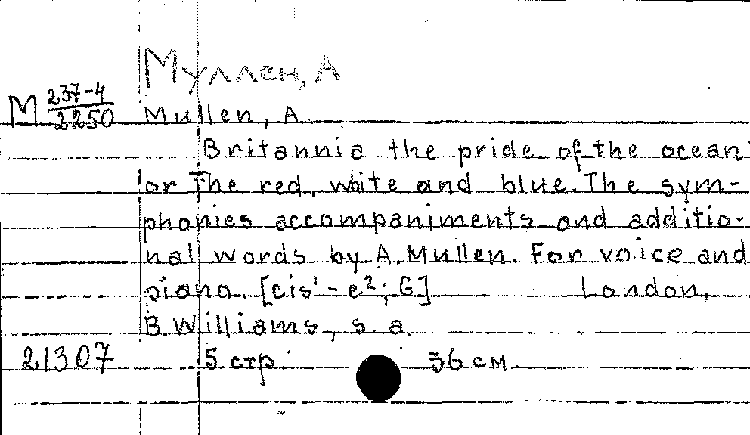 Муллен, А
М 237-4/2250 Mullen, A
Britannia the pride of the ocean
or The red, white and blue. The sym-
phonies accompaniments and additio-
nal words by A. Mullen. For voice and
piano. [cis¹ - e²; G] London,
B. Williams, s. a.
21307 5 стр. 36 см